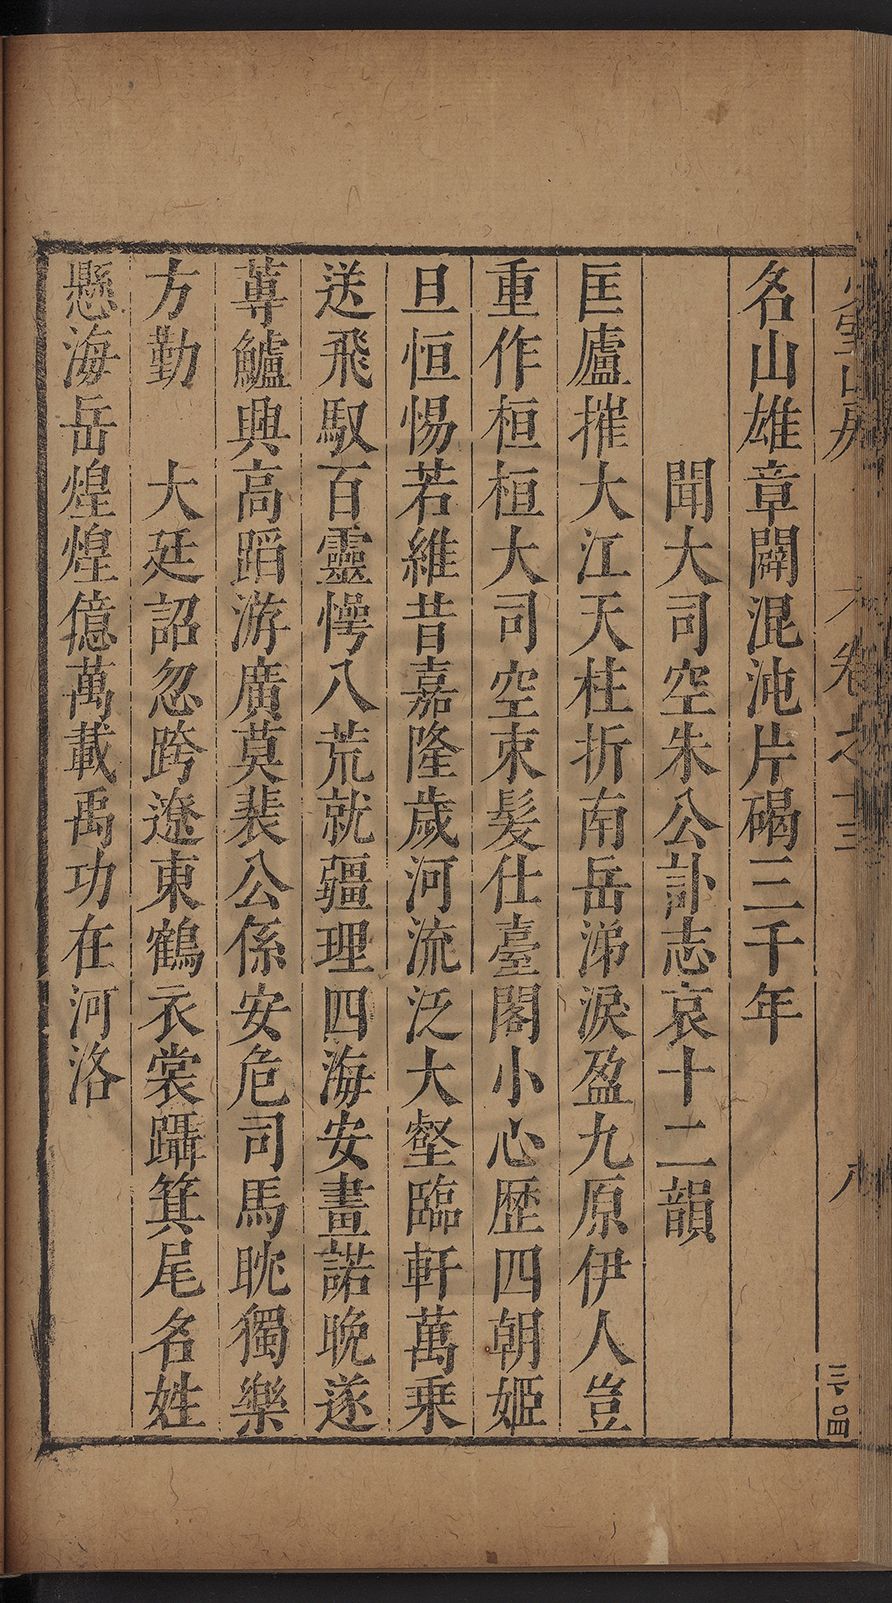 名山雄章闢混沌片碣三千年
聞大司空朱公訃志哀十二韻
匡廬摧大江天柱折南岳涕淚盈九原伊人豈
重作桓桓大司空束髮仕臺閣小心歷四朝姬
旦恒惕若維昔嘉隆歲河流泛大壑臨軒萬乘
送飛馭百靈愕八荒就疆理四海安畫諾晚遂
蓴鱸興高蹈游廣莫裴公係安危司馬眈獨樂
方勤 大廷詔忽跨遼東鶴衣裳躡箕尾名姓
懸海岳煌煌億萬載禹功在河洛
山房
卷之十三
八